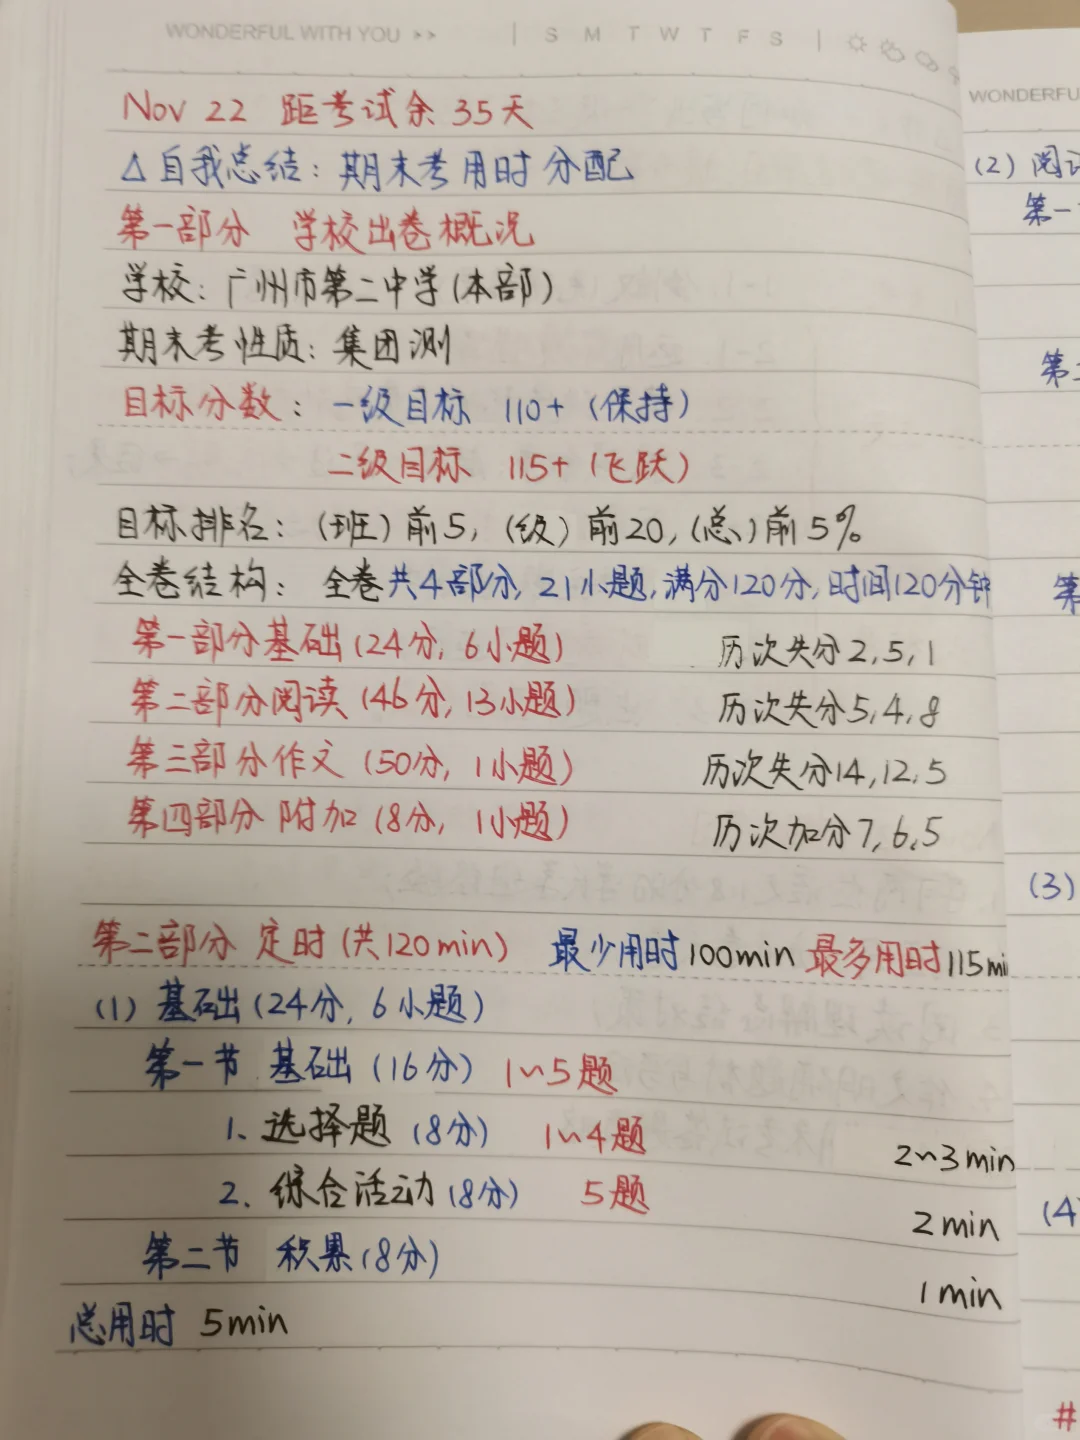 WONDERFUL WITH YOU >> | S M T W T F S |
Nov 22 距考试余35天
△自我总结：期末考用时分配
第一部分 学校出卷概况
学校：广州市第二中学(本部)
期末考性质：集团测
目标分数：一级目标 110+（保持）
二级目标 115+（飞跃）
目标排名：(班)前5，(级)前20，(总)前5%
全卷结构：全卷共4部分，21小题，满分120分，时间120分钟
第一部分基础(24分，6小题) 历次失分2,5,1
第二部分阅读(46分，13小题) 历次失分5,4,8
第三部分作文(50分，1小题) 历次失分14,12,5
第四部分附加(8分，1小题) 历次加分7,6,5
第二部分 定时(共120min) 最少用时100min 最多用时115mi
(1) 基础(24分，6小题)
第一节 基础(16分) 1~5题
1、选择题(8分) 1~4题 2~3min
2、综合活动(8分) 5题 2min
第二节 积累(8分) 1min
总用时 5min
WONDERFU
(2) 阅
第一
第
第
(3)
(4
#